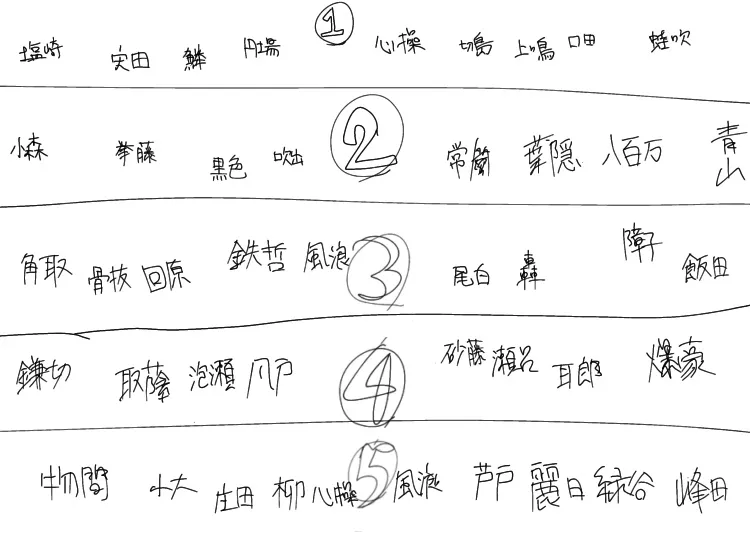 塩崎 宍田 鱗 円場 ① 心操 切島 上鳴 口田 蛙吹
小森 拳藤 黒色 吹出 ② 常闇 葉隠 八百万 青山
角取 骨抜 回原 鉄哲 風浪 ③ 尾白 轟 障子 飯田
鎌切 取蔭 泡瀬 凡戸 ④ 砂藤 瀬呂 耳郎 爆豪
物間 小大 庄田 柳 心操 ⑤ 風浪 芦戸 麗日 緑谷 峰田